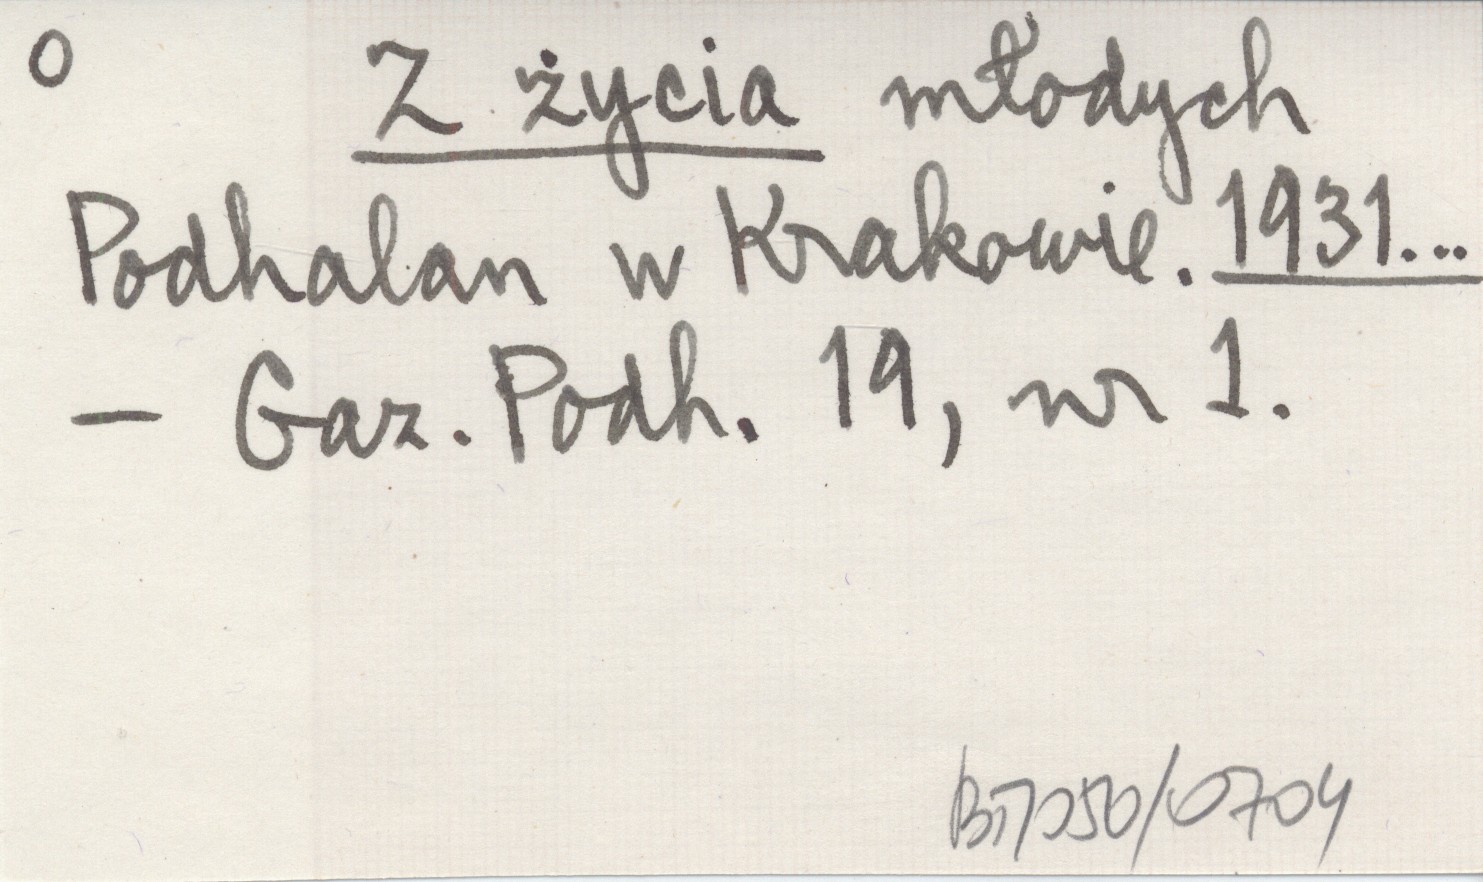 o Z życia młodych
Podhalan w Krakowie. 1931...
— Gaz. Podh. 19, nr 1.
BT/050/0704